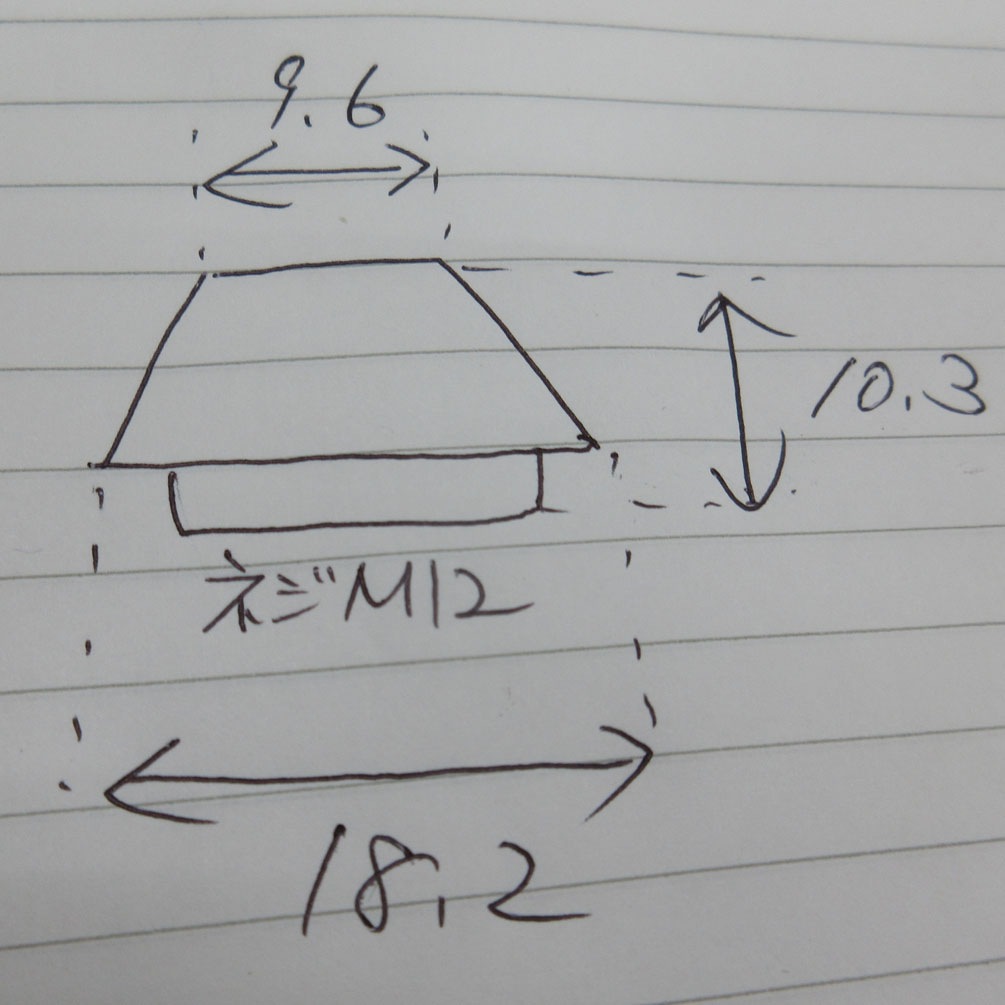 9.6
10.3
ネジM12
18.2